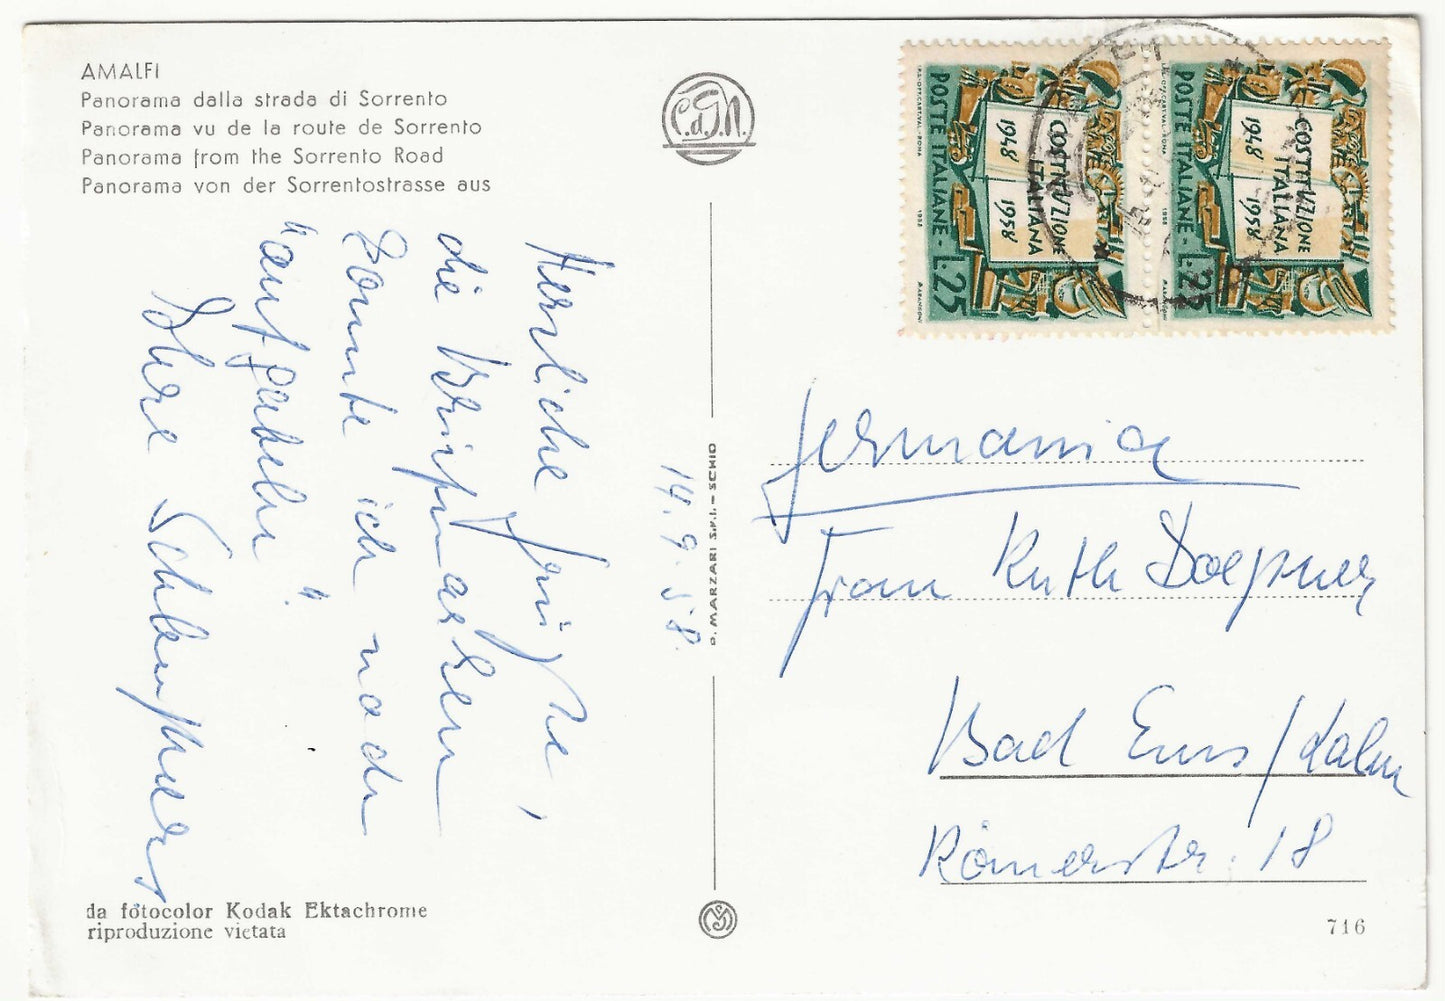 AMALFI
Panorama dalla strada di Sorrento
Panorama vu de la route de Sorrento
Panorama from the Sorrento Road
Panorama von der Sorrentostrasse aus
C.d.G.N.
POSTE ITALIANE - L.25
COSTITUZIONE
ITALIANA
1948
1958
POSTE ITALIANE - L.25
COSTITUZIONE
ITALIANA
1948
1958
14.9.58.
Herzliche Grüße,
die Briefmarken
konnte ich noch
"aufgabeln".
Ihre
D. MARZARI S.P.I. - SCHIO
Germania
Frau Ruth Doepner
Bad Ems/Lahn
Römerstr. 18
da fotocolor Kodak Ektachrome
riproduzione vietata
716